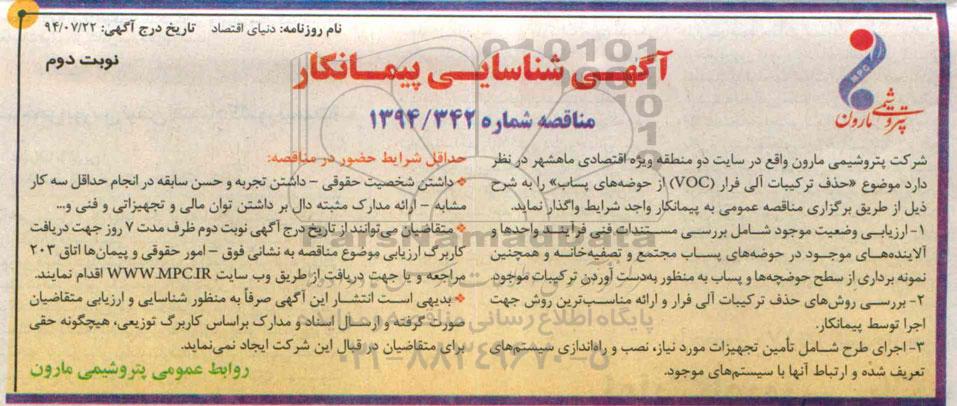 نام روزنامه: دنیای اقتصاد تاریخ درج آگهی: ۹۴/۰۷/۲۲
نوبت دوم
آگهـی شناسایـی پیمـانکار
مناقصه شماره ۱۳۹۴/۳۴۲
M.P.C
پتروشیمی مارون
شرکت پتروشیمی مارون واقع در سایت دو منطقه ویژه اقتصادی ماهشهر در نظر
دارد موضوع «حذف ترکیبات آلی فرار (VOC) از حوضه‌های پساب» را به شرح
ذیل از طریق برگزاری مناقصه عمومی به پیمانکار واجد شرایط واگذار نماید.
۱- ارزیابـی وضعیت موجود شـامل بررسـی مسـتندات فنی فرآینـد واحدها و
آلاینده‌هـای موجـود در حوضه‌های پسـاب مجتمع و تصفیه‌خانـه و همچنین
نمونه برداری از سطح حوضچه‌ها و پساب به منظور به‌دست آوردن ترکیبات موجود.
۲- بررسـی روش‌های حذف ترکیبات آلی فرار و ارائه مناسـب‌ترین روش جهت
اجرا توسط پیمانکار.
۳- اجرای طرح شـامل تأمین تجهیزات مورد نیاز، نصب و راه‌اندازی سیستم‌های
تعریف شده و ارتباط آنها با سیستم‌های موجود.
حداقل شرایط حضور در مناقصه:
داشتن شخصیت حقوقی - داشتن تجربه و حسن سابقه در انجام حداقل سه کار
مشابه - ارائه مدارک مثبته دال بر داشتن توان مالی و تجهیزاتی و فنی و...
متقاضیان می‌توانند از تاریخ درج آگهی نوبت دوم ظرف مدت ۷ روز جهت دریافت
کاربرگ ارزیابی موضوع مناقصه به نشانی فوق - امور حقوقی و پیمان‌ها اتاق ۲۰۳
مراجعه و یا جهت دریافت از طریق وب سایت WWW.MPC.IR اقدام نمایند.
بدیهی اسـت انتشـار این آگهی صرفاً به منظور شناسایی و ارزیابی متقاضیان
صورت گرفته و ارسـال اسناد و مدارک براساس کاربرگ توزیعی، هیچگونه حقی
برای متقاضیان در قبال این شرکت ایجاد نمی‌نماید.
روابط عمومی پتروشیمی مارون
ParsNamadData
پایگاه اطلاع رسانی مناقصه و مزایده
۰۲۱-۸۸۳۴۹۶۷۰-۵